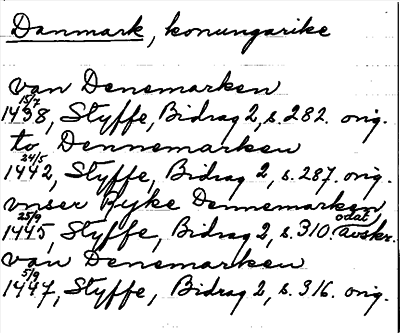 Danmark, konungarike
van Denemarken
15/7
1438, Styffe, Bidrag 2, s. 282. orig.
to Dennemarken
24/5
1442, Styffe, Bidrag 2, s. 287. orig.
vnser Ryke Dennemarken
25/9 odat.
1445, Styffe, Bidrag 2, s. 310. avskr.
van Denemarken
5/9
1447, Styffe, Bidrag 2, s. 316. orig.